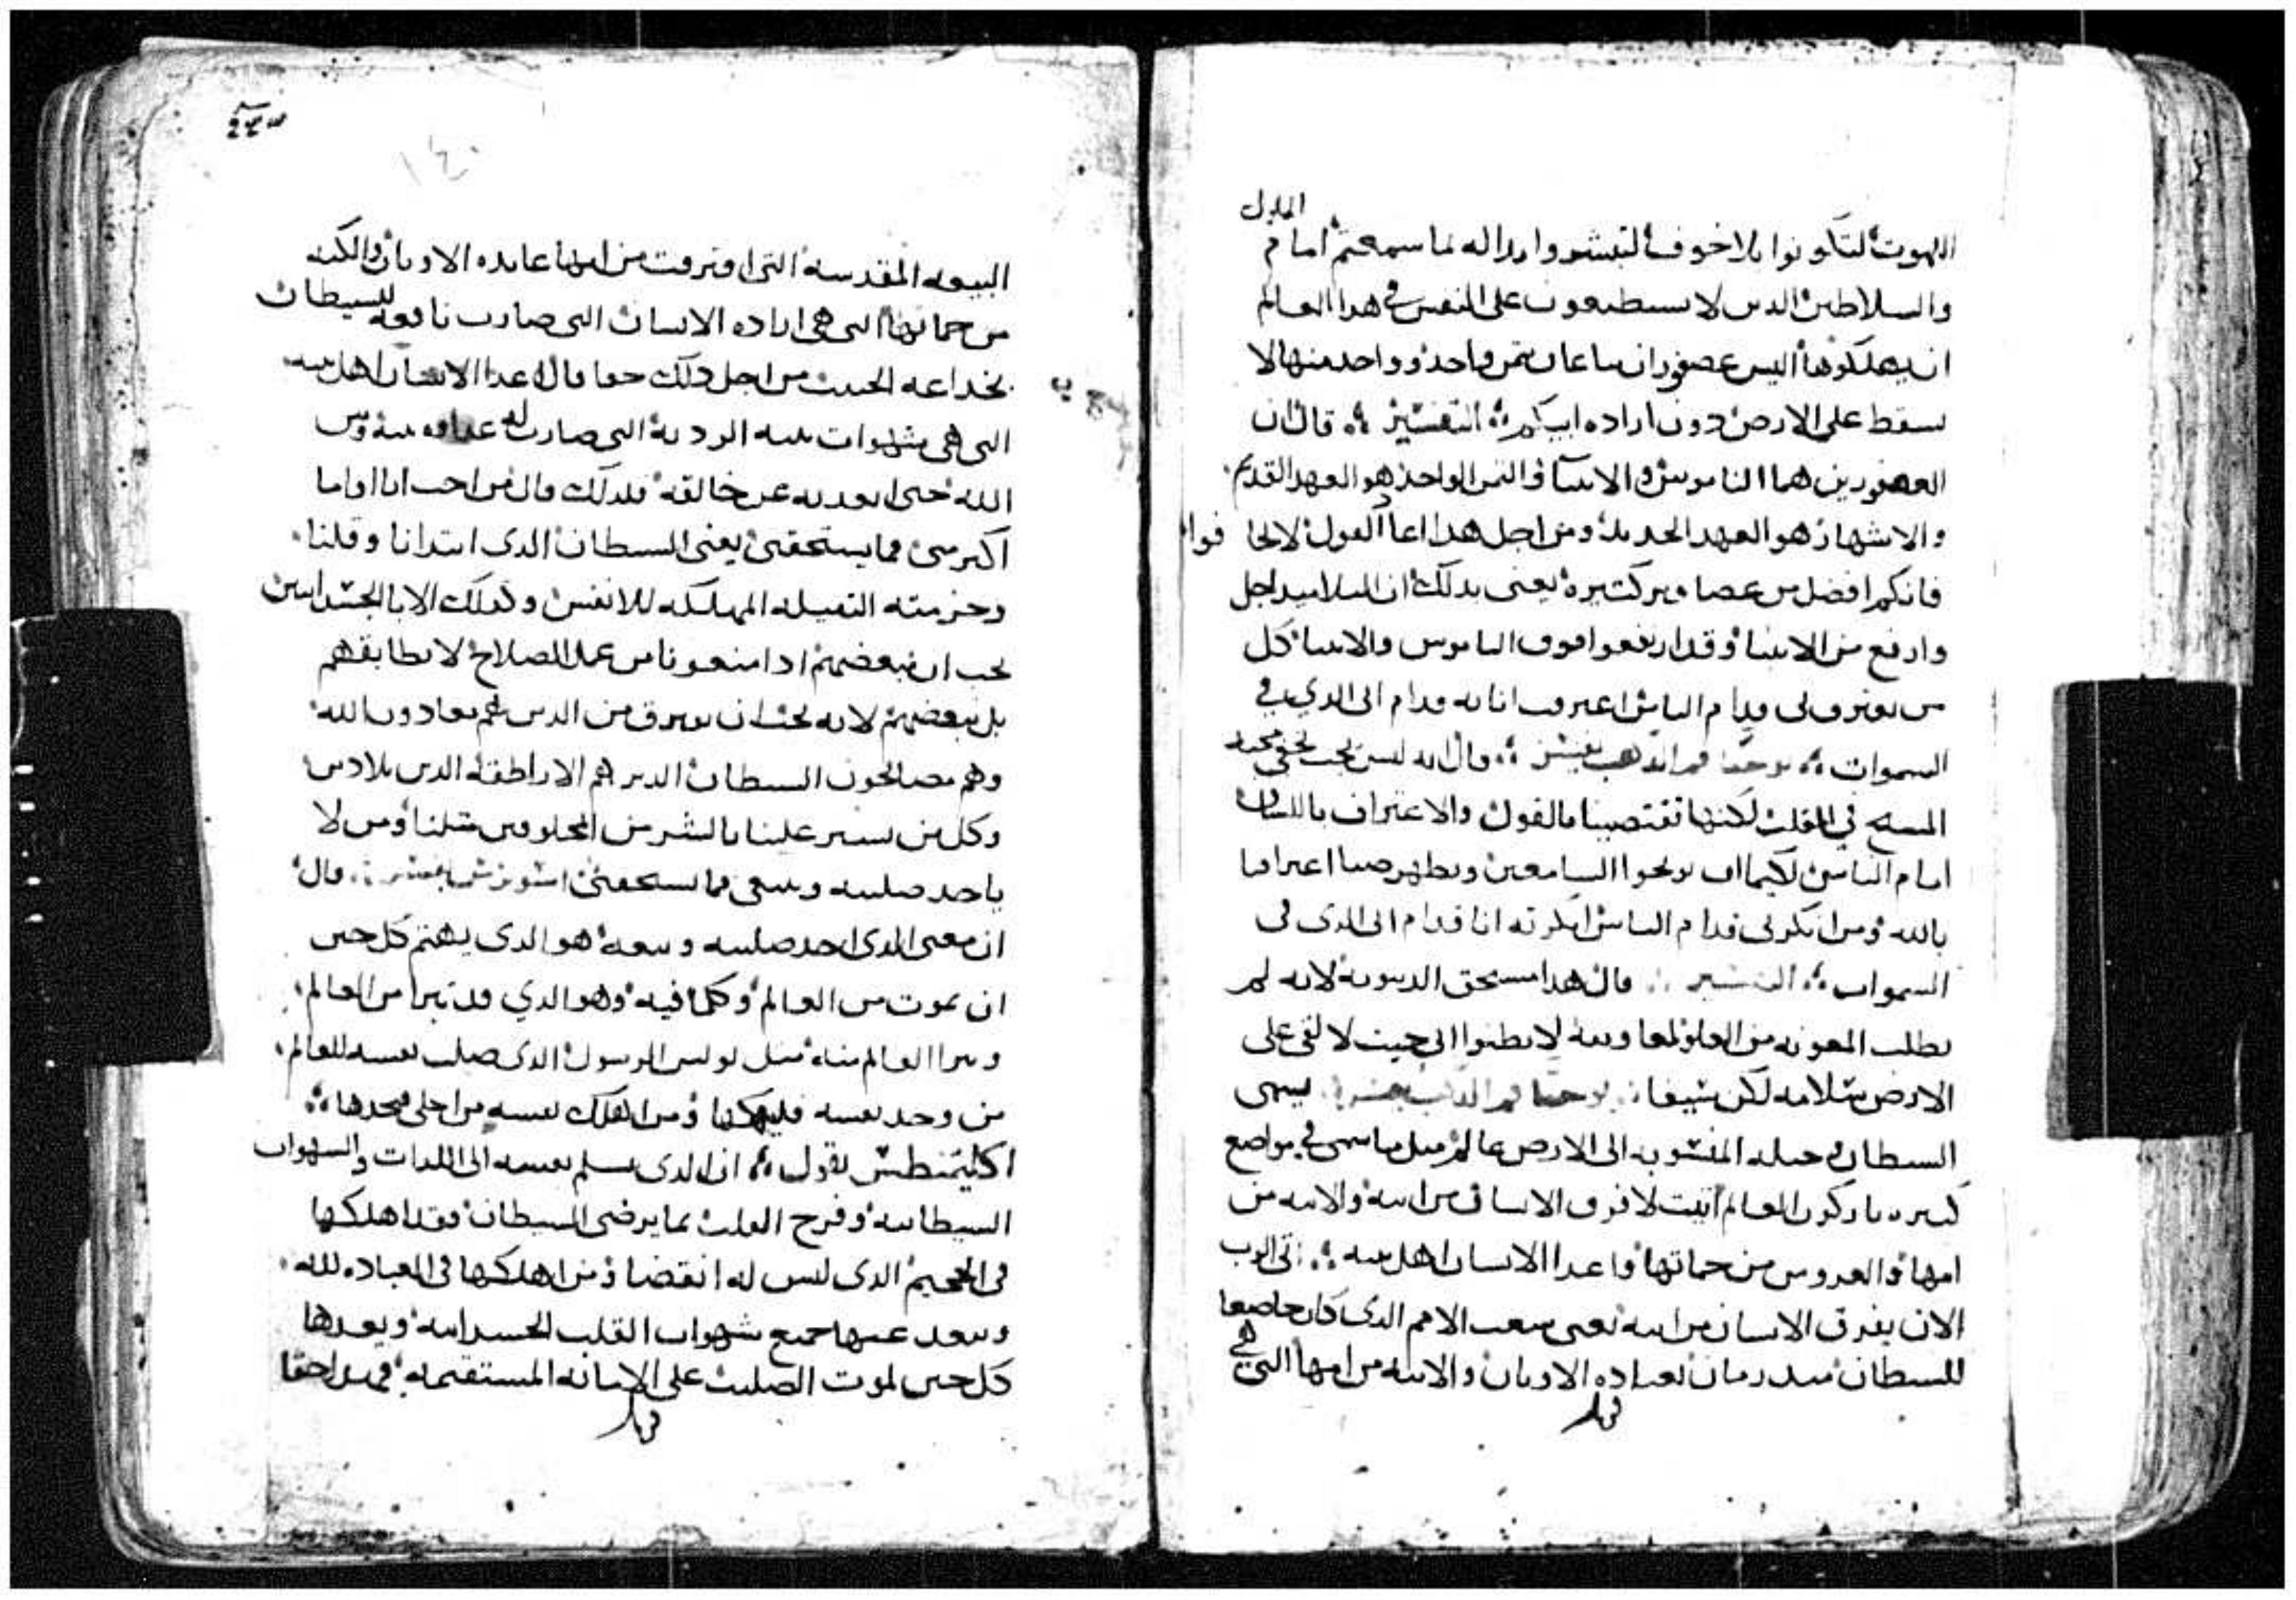 الملوك
اللهوت لتكونوا بلا خوف لتبشروا برساله بما سمعتم امام
والسلاطين الدين لا يستطيعون على النفس في هدا العالم
ان يهلكوها اليس عصفوران يباعان بثمن واحد وواحد منها لا
يسقط على الارض دون اراده ابيكم التفسير قال ان
العصفورين هما الناموس والانبيا والثمن الواحد هو العهد القديم
والاشهار هو العهد الجديد ومن اجل هدا اعاد القول لا تخافوا
فانكم افضل من عصافير كتيره يعني بدلك ان التلاميد اجل
وارفع من الانبيا وقد ارتفعوا فوق الناموس والانبيا كل
من يعترف بي قدام الناس اعترف انا به قدام ابي الدي في
السموات يوحنا فم الدهب يفسر قال انه ليس يجب تخفي محبه
المسيح في القلب لكنها تغتصبنا بالقول والاعتراف باللسان
امام الناس لكيما ان يربحوا السامعين ويظهر منا اعترافا
بالله ومن انكرني قدام الناس انكرته انا قدام ابي الدي في
السموات التفسير قال هدا مستحق الدينونه لانه لم
يطلب المعونه من العلو لمعاونته لا تظنوا اني جيت لالقي على
الارض سلامه لكن سيفا يوحنا فم الدهب يفسر يسمى
السيطان وحيله المنسوبه الى الارض عالم مثل ما سمى في مواضع
كتيره باركون العالم اتيت لافرق الانسان من ابيه والابنه من
امها والعروس من حماتها واعدا الانسان اهل بيته اتى الرب
الان يفرق الانسان من ابيه يعني شعب الامم الدي كان خاضعا
للسيطان مند زمان بعباده الاوتان والابنه من امها التي هي
قوبل
البيعه المقدسه التي افترقت من امها عابده الاوتان والكنه
من حماتها التي هي اراده الانسان التي صارت تابعه للسيطان
بخداعه الخبيث من اجل دلك حقا قال اعدا الانسان اهل بيته
التي هي شهوات بيته الرديه التي صارت له عداوه بينه وبين
الله حتى ابعدته عن خالقه فلدلك قال من احب ابا او اما
اكتر مني فما يستحقني يعني السيطان الدي ابتدانا وقلنا
وحزمته التقيله المهلكه للانفس وكدلك الابا الجسدانيين
يجب ان نبغضهم ادا منعونا من عمل الصلاح لا نطابقهم
بل نبغضهم لانه يجب ان نفترق من الدين هم معادون الله
وهم مصالحون السيطان الدين هم الاراطقه الدين بلا دين
وكل من يسير علينا بالشر من المخلوقين متلنا ومن لا
ياخد صليبه ويتبعني فما يستحقني يفسر قال
ان معنى الدي اخد صليبه وتبعه هو الدي يهتم كل حين
ان يموت من العالم وكلما فيه وهو الدي قد تبرا من العالم
وتبرا العالم منه متل بولس الرسول الدي صلب نفسه للعالم
من وجد نفسه فليهلكها ومن اهلك نفسه من اجلي فيجدها
اكليمنطس يقول ان الدي يسلم نفسه الى اللدات والشهوات
السيطانيه وفرح القلب بما يرضي السيطان فقد اهلكها
في الجحيم الدي ليس له انقضا ومن اهلكها في العباده لله
ويبعد عنها جميع شهوات القلب الجسدانيه ويعدها
كل حين لموت الصليب على الامانه المستقيمه فهي حقا
قوبل